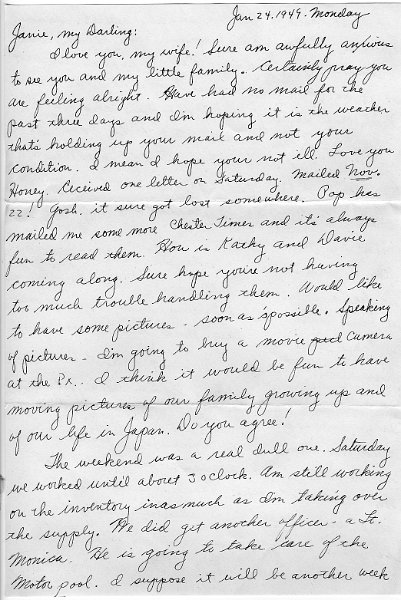 Jan 24. 1949. Monday
Janie, my Darling:
I love you, my wife! Sure am awfully anxious
to see you and my little family. Certainly pray you
are feeling alright. Have had no mail for the
past three days and I'm hoping it is the weather
that's holding up your mail and not your
condition. I mean I hope your not ill. Love you
Honey. Recieved one letter on Saturday. Mailed Nov.
22! Gosh, it sure got lost somewhere. Pop has
mailed me some more Chester Times and it's always
fun to read them. How is Kathy and Davie
coming along. Sure hope you're not having
too much trouble handling them. Would like
to have some pictures - soon as possible. Speaking
of pictures - I'm going to buy a movie camera
at the Px.. I think it would be fun to have
moving pictures of our family growing up and
of our life in Japan. Do you agree!
The weekend was a real dull one. Saturday
we worked until about 3 oclock. Am still working
on the inventory inasmuch as I'm taking over
the supply. We did get another officer - a Lt.
Monica. He is going to take care of the
Motor pool. I suppose it will be another week